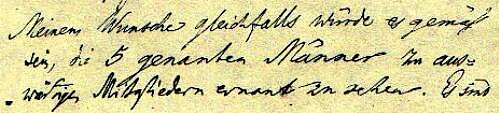 Meinem Wunsche gleichfalls würde es gemäß
sein, die 5 genanten Männer zu aus=
wärtigen Mitgliedern ernant zu sehen. Es sind